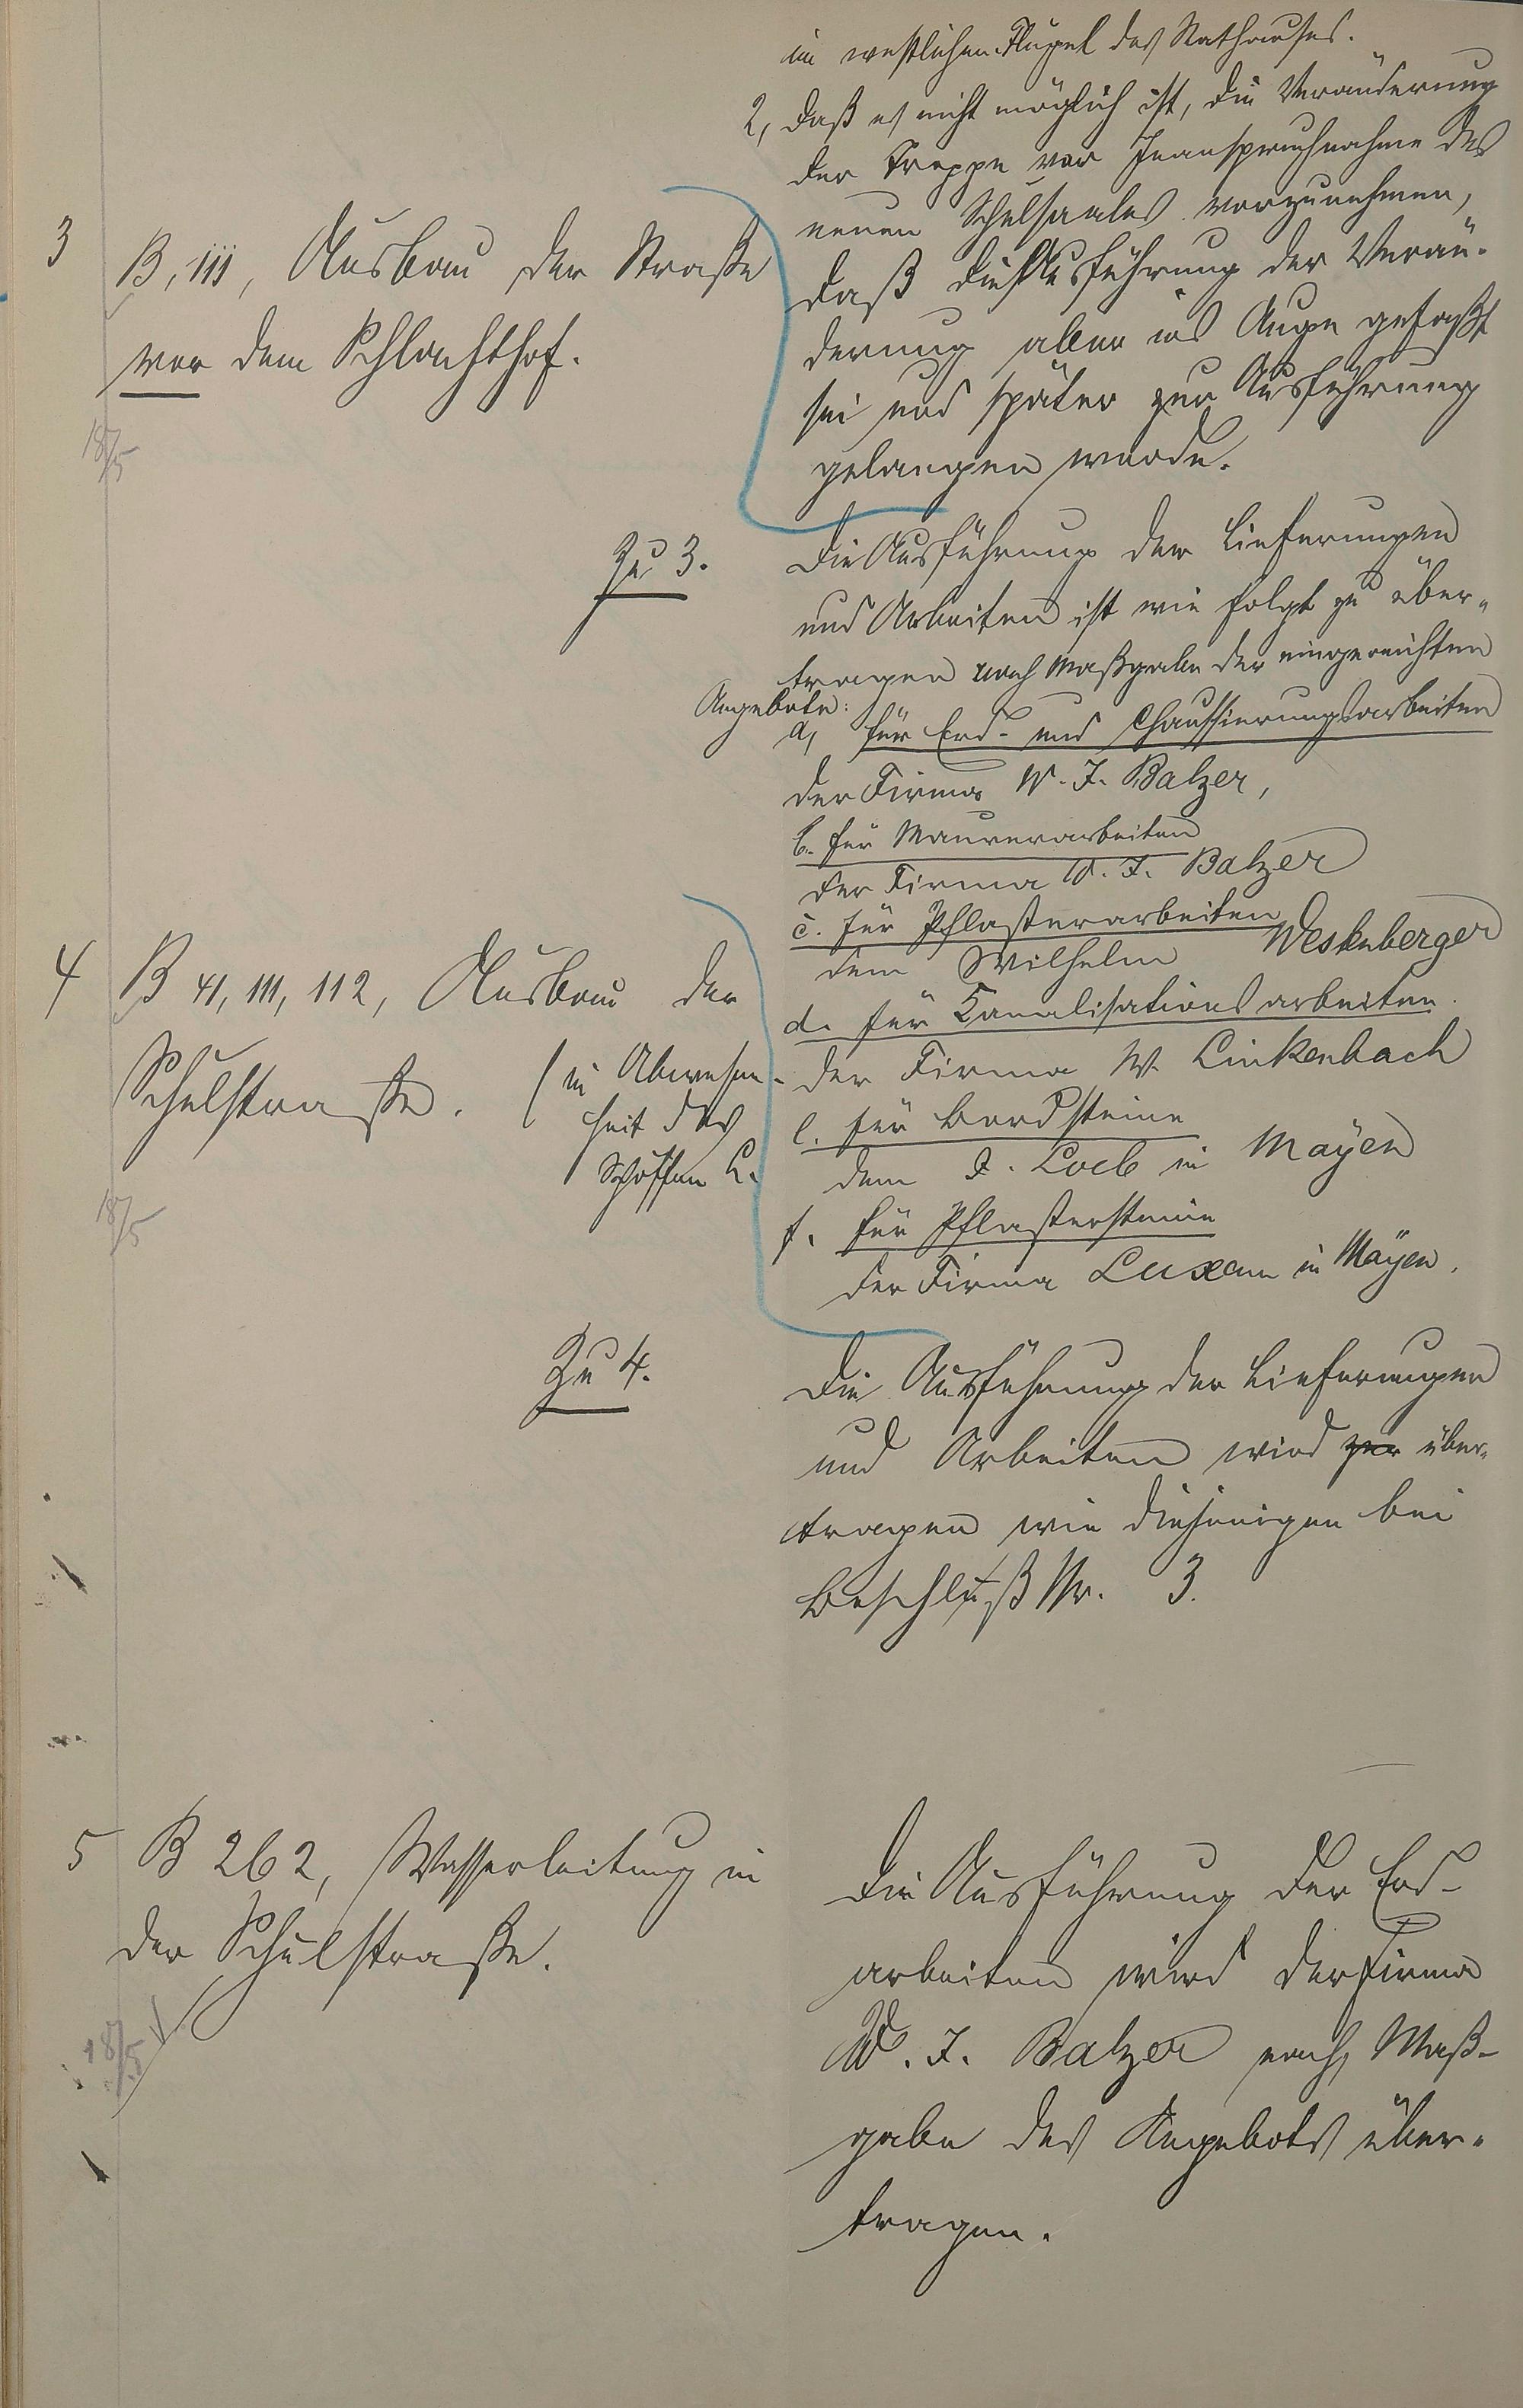 im westlichen Flügel des Rathauses.
2, daß es nicht möglich ist, die Veränderung
der Treppe vor Inanspruchnahme des
neuen Schulsaales vorzunehmen,
daß die Ausführung der Verän-
derung aber ins Auge gefaßt
sei und später zur Ausführung
gelangen werde.
3 B, 111, Ausbau der Straße
vor dem Schlachthof.
18/5
Zu 3.
Die Ausführung der Lieferungen
und Arbeiten ist wie folgt zu über-
tragen nach Maßgabe der eingereichten
Angebote:
a, für Erd- und Chaussierungsarbeiten
der Firma W. J. Balzer,
b. für Maurerarbeiten
der Firma W. J. Balzer
c. für Pflasterarbeiten
dem Wilhelm Westenberger
d. für Kanalisationsarbeiten.
der Firma W. Linkenbach
e. für Bordsteine
dem J. Loeb in Mayen
f. für Pflastersteine
der Firma Luxem in Mayen.
4 B 41, 111, 112, Ausbau der
Schulstraße.
(in Abwesen-
heit des
Schöffen L.
18/5
Zu 4.
Die Ausführung der Lieferungen
und Arbeiten wird zur über-
tragen wie diejenigen bei
Beschluß Nr. 3.
5 B 262, Wasserleitung in
der Schulstraße.
18/5
Die Ausführung der Erd-
arbeiten wird der Firma
W. J. Balzer nach Maß-
gabe des Angebots über-
tragen.